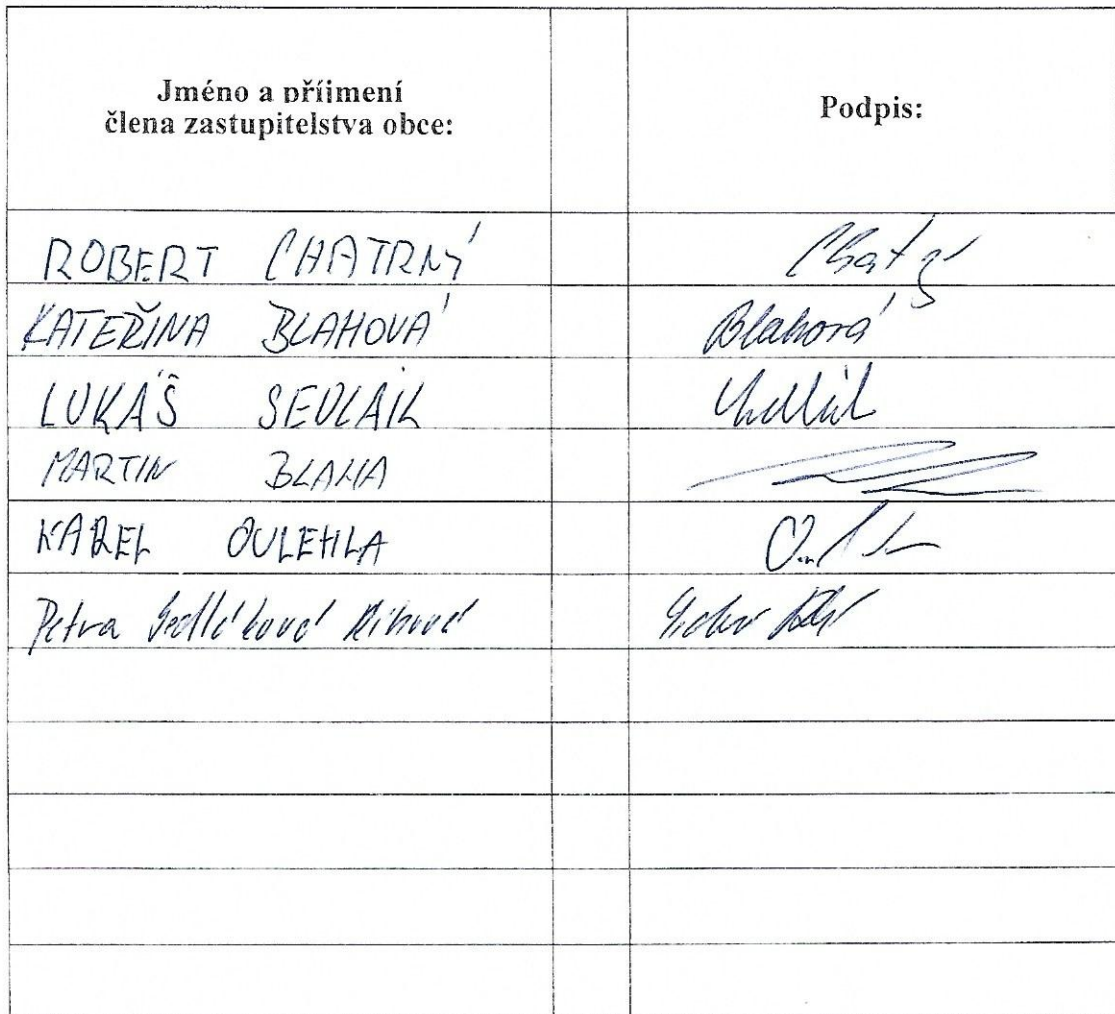 Jméno a příjmení
člena zastupitelstva obce:
Podpis:
ROBERT CHATRNÝ
KATEŘINA BLAHOVÁ Blahová
LUKÁŠ SEDLÁK
MARTIN BLAHA
KAREL OULEHLA
Petra Sedláková